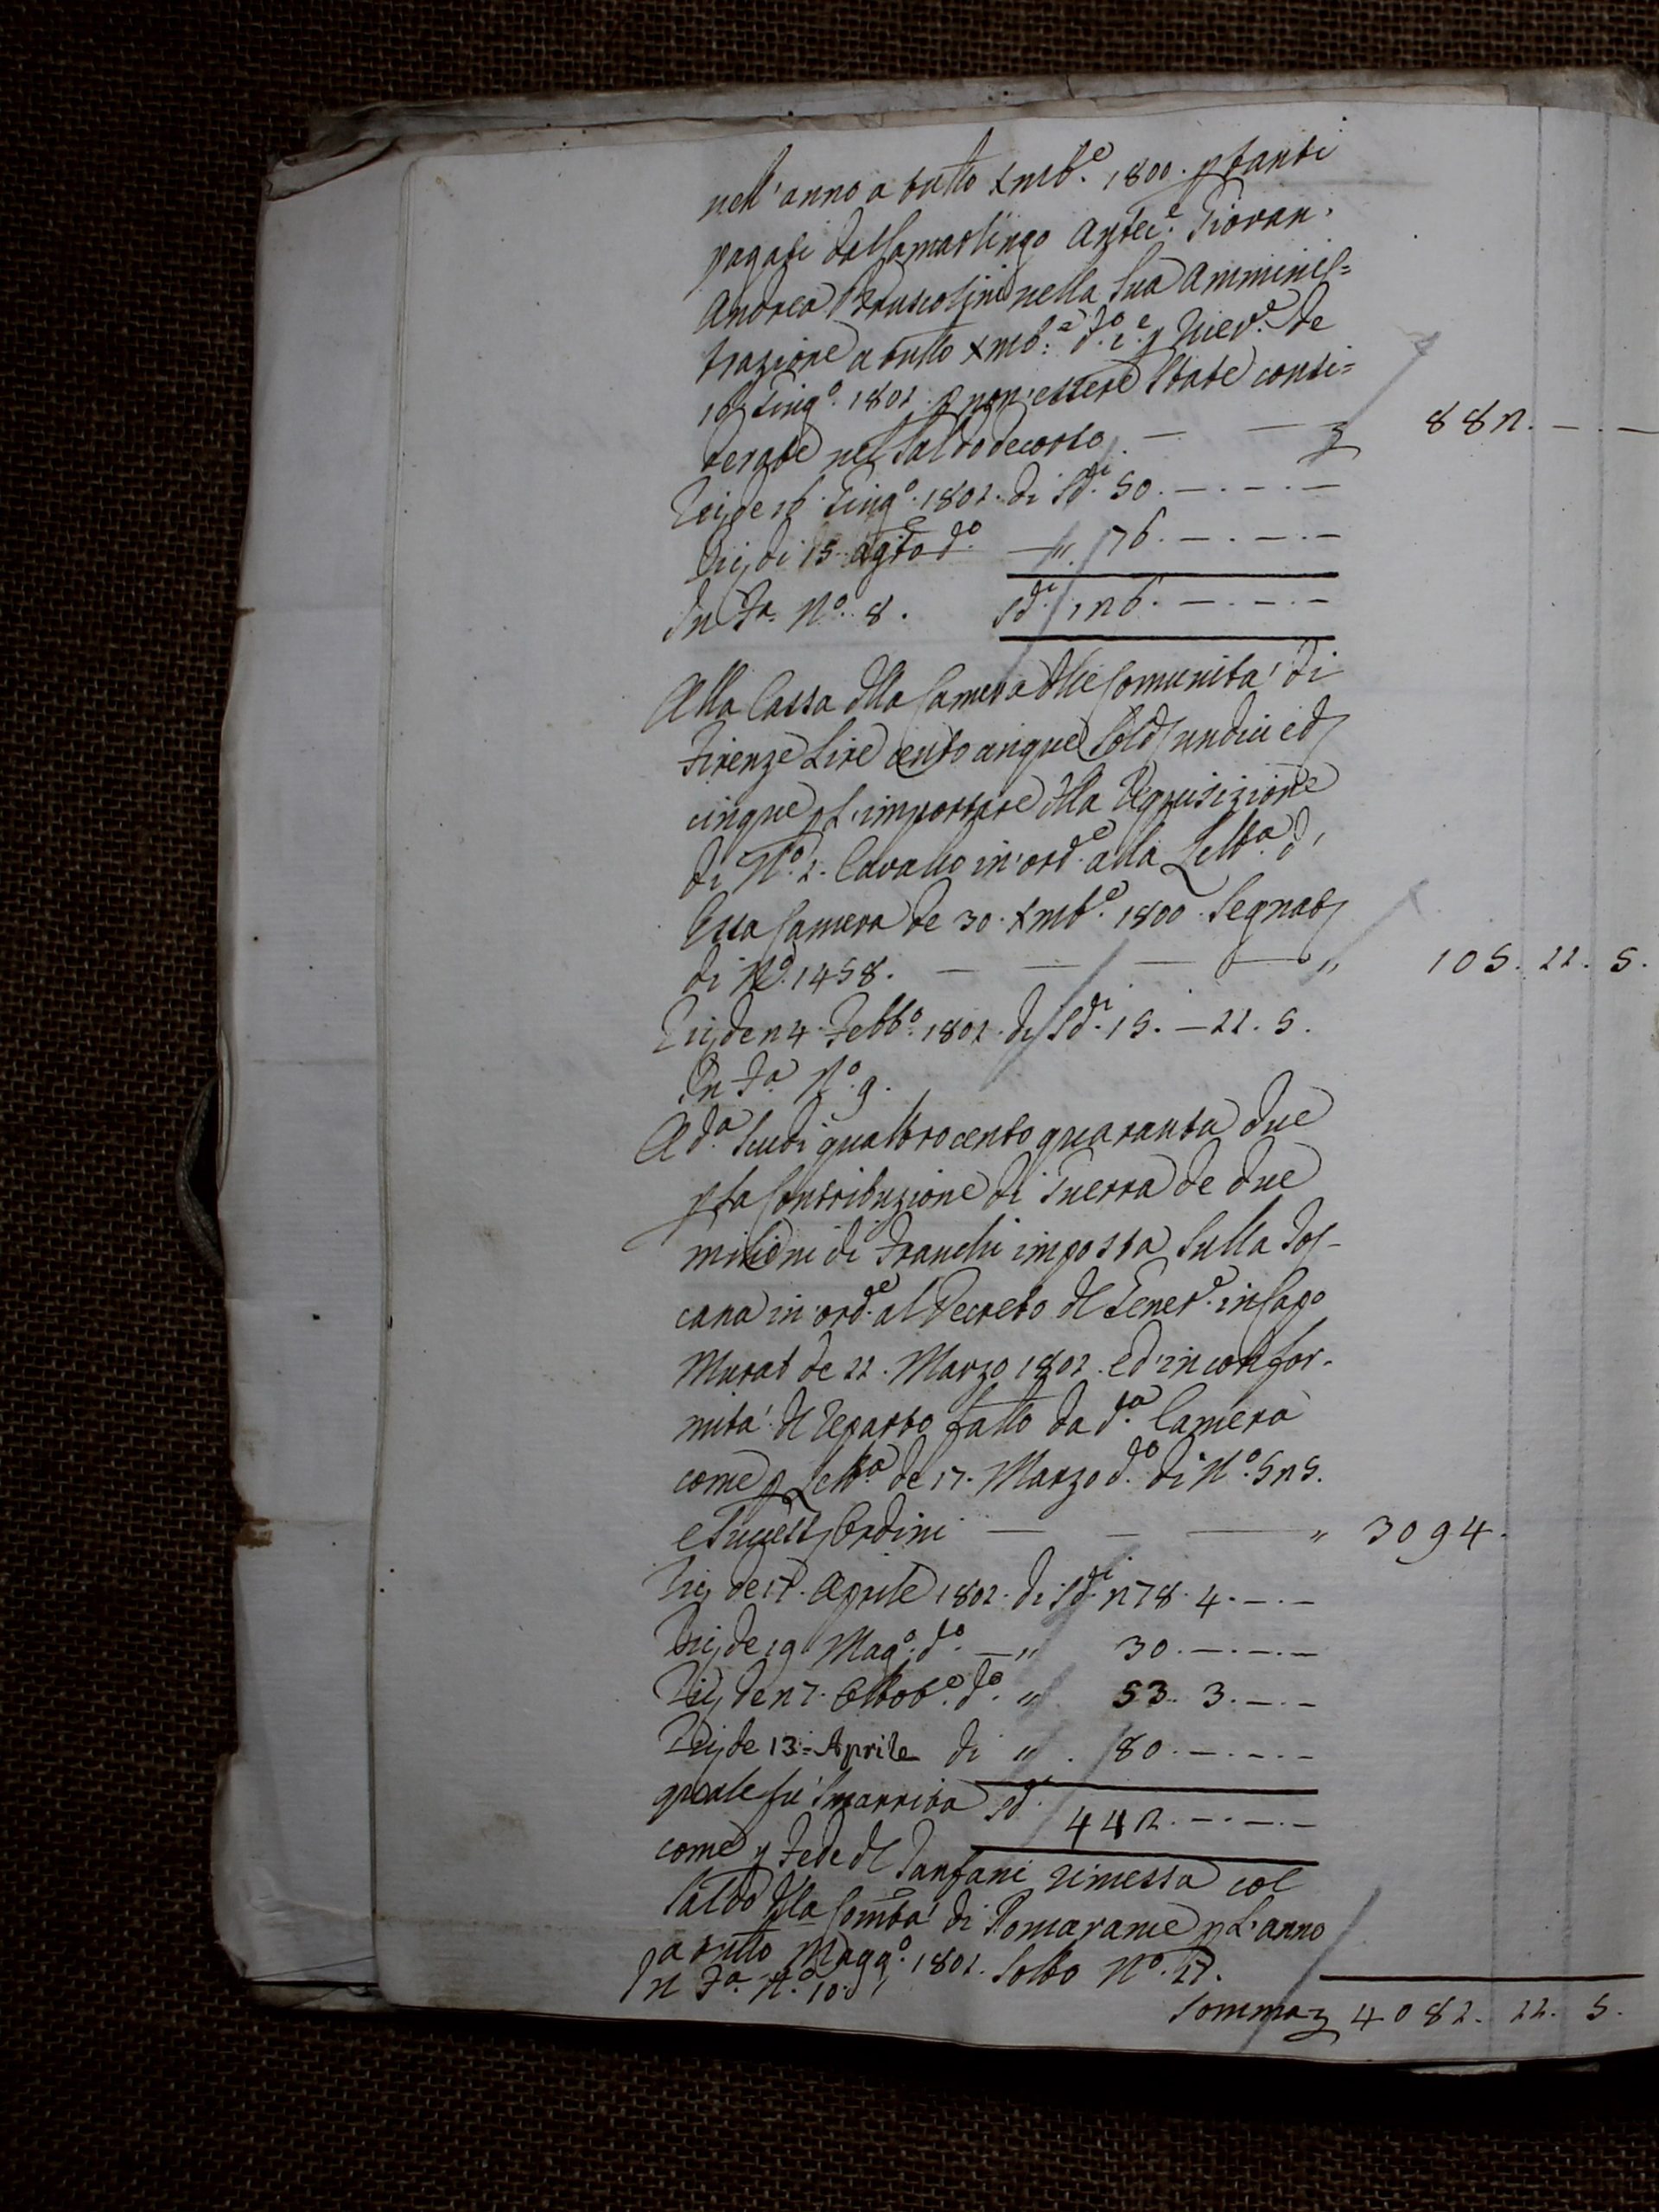 nell'anno a tutto Xmb.e 1800. p tanti
pagati dal Camarlingo Antec.e Giovan.
Andrea Bruscolini nella Sua Amminis=
trazione a tutto Xmb.e d.o e p Ricev.e de
16 Giug.o 1801. p non essere State consi=
derate nel Saldo decorso. — — £ 882. — . —
Ricj de 16. Giug.o 1801. di Sd.i 50. — . — . —
Ricj di 15. Agto d.o — „ 76. — . — . —
In Fa. N.o 8. Sd.i 126. — . — . —
Alla Cassa dlla Camera dlle Comunita' di
Firenze Lire cento cinque Soldj undici e dj
cinque p l'importare dlla Requisizione
di N.o 1. Cavallo in ord.e alla Lett.a d'
Essa Camera de 30. Xmb.e 1800. Segnatj
di N.o 1458. — — — — „ 105. 11. 5.
Ricj de 24. Febb.o 1801. dj Sd.i 15. — 11. 5.
In Fa. N.o 9.
A d.a Scudi quattrocento quaranta due
p la Contribuzione di Guerra de due
milioni di Franchi imposta Sulla Tos-
cana in ord.e al Decreto dl Gener.e in Capo
Murat de 11. Marzo 1801. ed in confor-
mita' dl Reparto fatto da d.a Camera
come p Lett.a de 17. Marzo d.o di N.o 525.
e Successj Ordini — — — „ 3094.
Ricj de 17. Aprile 1801. di Sd.i 278. 4. — . —
Ricj de 19 Mag.o d.o — „ 30. — . — . —
Ricj de 27. Ottob.e d.o „ 53. 3. — . —
Ricj de 13= Aprile di „ . 80. — . — . —
quale fu' Smarrita Sd. 442. — . — . —
come p Fede dl Tanfani rimessa col
Saldo dlla Comta' di Pomarance p L'anno
a tutto Magg.o 1801. Sotto N.o 17.
In Fa. N.o 10.
Somma £ 4081. 11. 5.